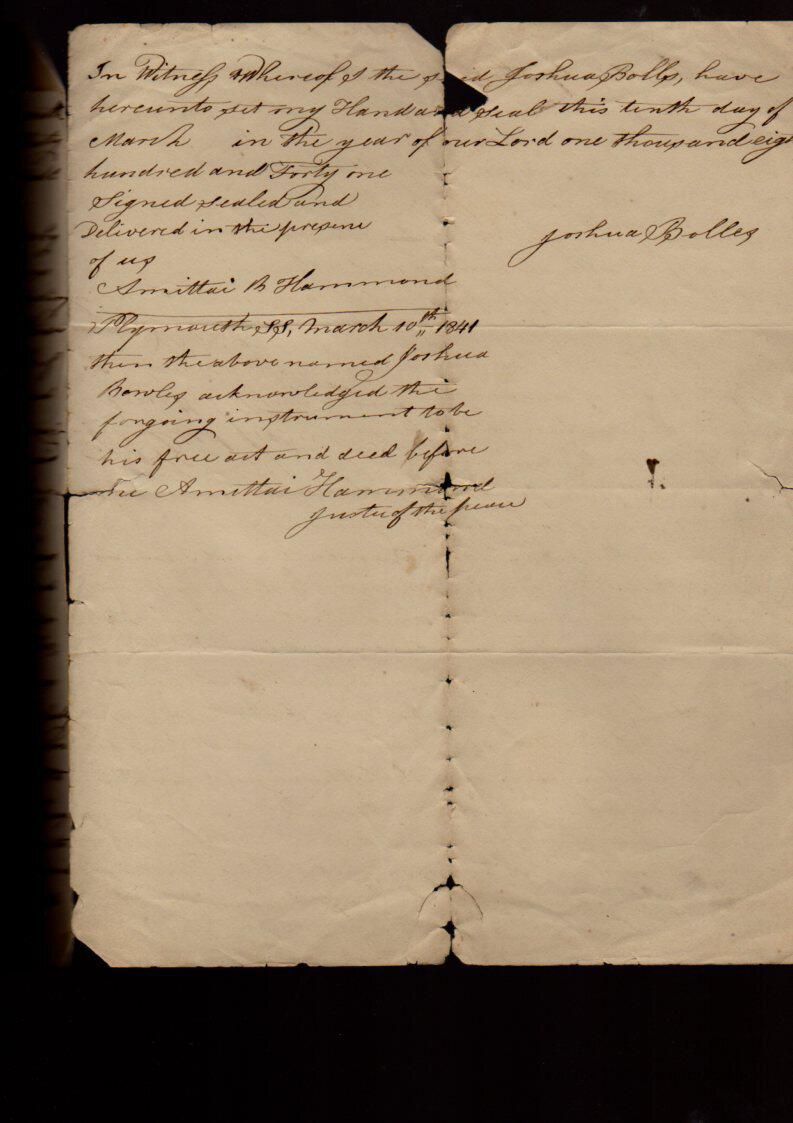 In Witness Whereof I the s id Joshua Bolls, have
hereunto set my Hand and Seal this tenth day of
March in the year of our Lord one thousand eig
hundred and Forty one
Signed sealed and
Delivered in the presene
of us
Joshua Bolles
Amittai B Hammond
Plymouth, SS, March 10th 1841
then the above named Joshua
Bowles acknowledged the
forgoing instrument to be
his free act and deed before
me Amittai Hammond
Justice of the peace